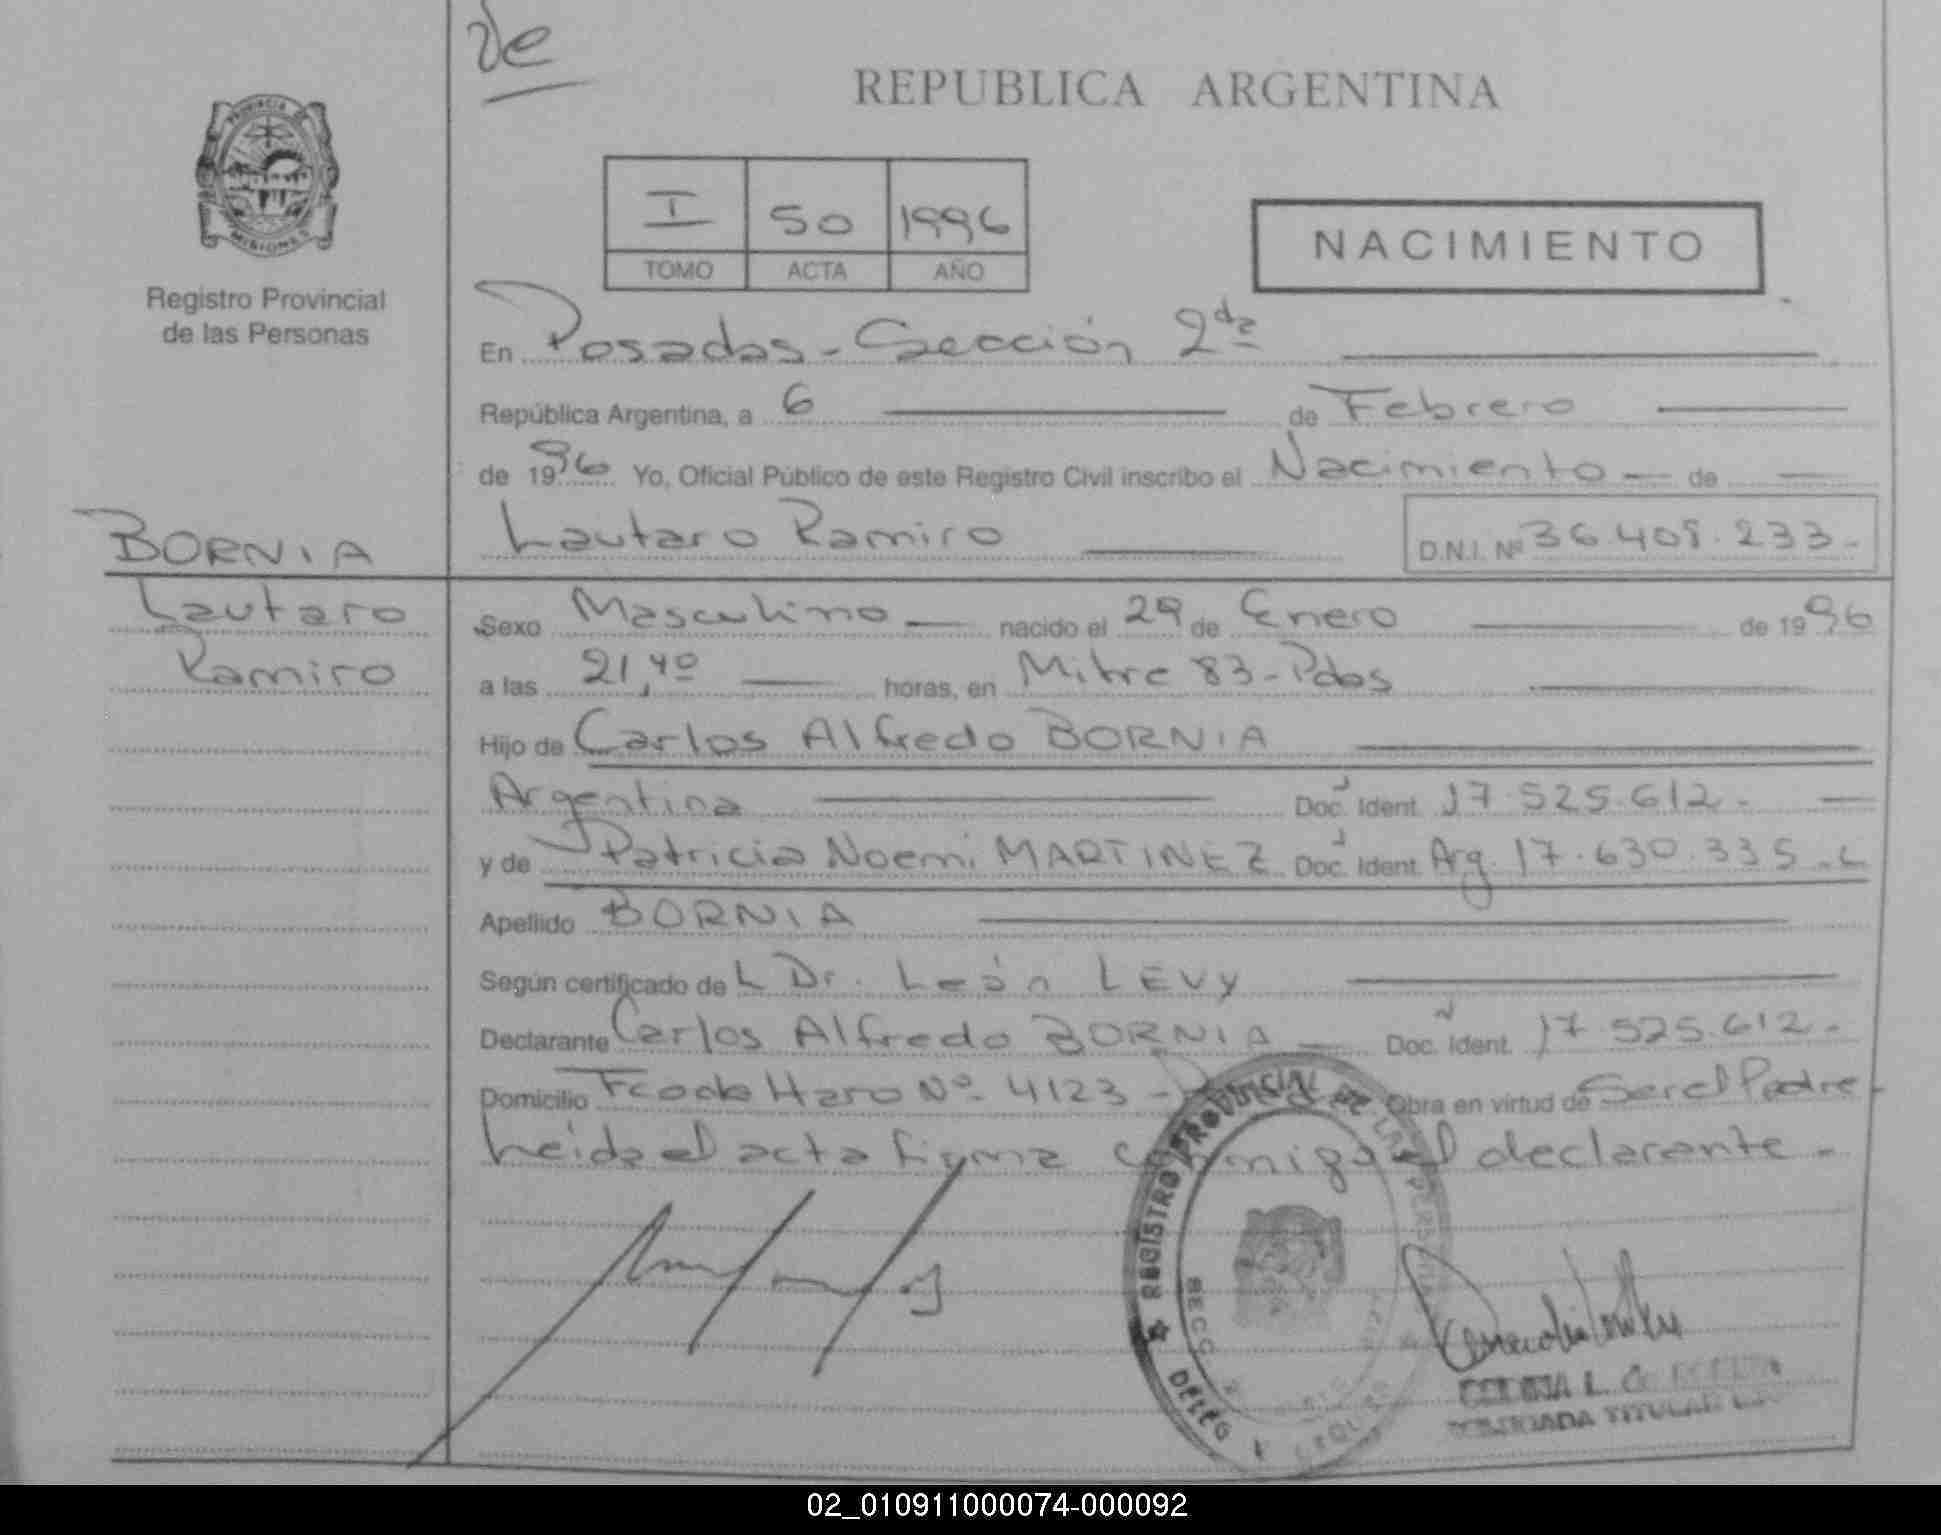 de
REPUBLICA ARGENTINA
PROVINCIA DE
MISIONES
Registro Provincial
de las Personas
I 50 1996
TOMO ACTA AÑO
NACIMIENTO
En Posadas - Sección 2da
República Argentina, a 6 de Febrero
de 1996 Yo, Oficial Público de este Registro Civil inscribo el Nacimiento de
BORNIA
Lautaro Ramiro D.N.I. Nº 36.408.233.-
Lautaro
Ramiro
Sexo Masculino nacido el 29 de Enero de 1996
a las 21,40 horas, en Mitre 83 - Pdas
Hijo de Carlos Alfredo BORNIA
Argentina Doc. Ident. 17.525.612.-
y de Patricia Noemi MARTINEZ Doc. Ident. Arg. 17.630.335.-
Apellido BORNIA
Según certificado de L Dr. León LEVY
Declarante Carlos Alfredo BORNIA Doc. Ident. 17.525.612.-
Domicilio Fco de Haro Nº 4123 - Obra en virtud de Ser el Padre-
Leida el acta firma conmigo el declarante.-
REGISTRO PROVINCIAL DE LAS PERSONAS
TITULAR
02_010911000074-000092